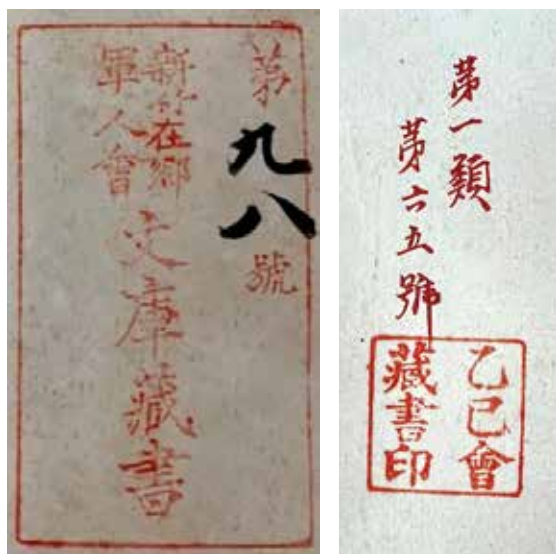 第九八號
新竹在鄉
軍人會
文庫藏書
第一類
第六五號
乙巳會
藏書印